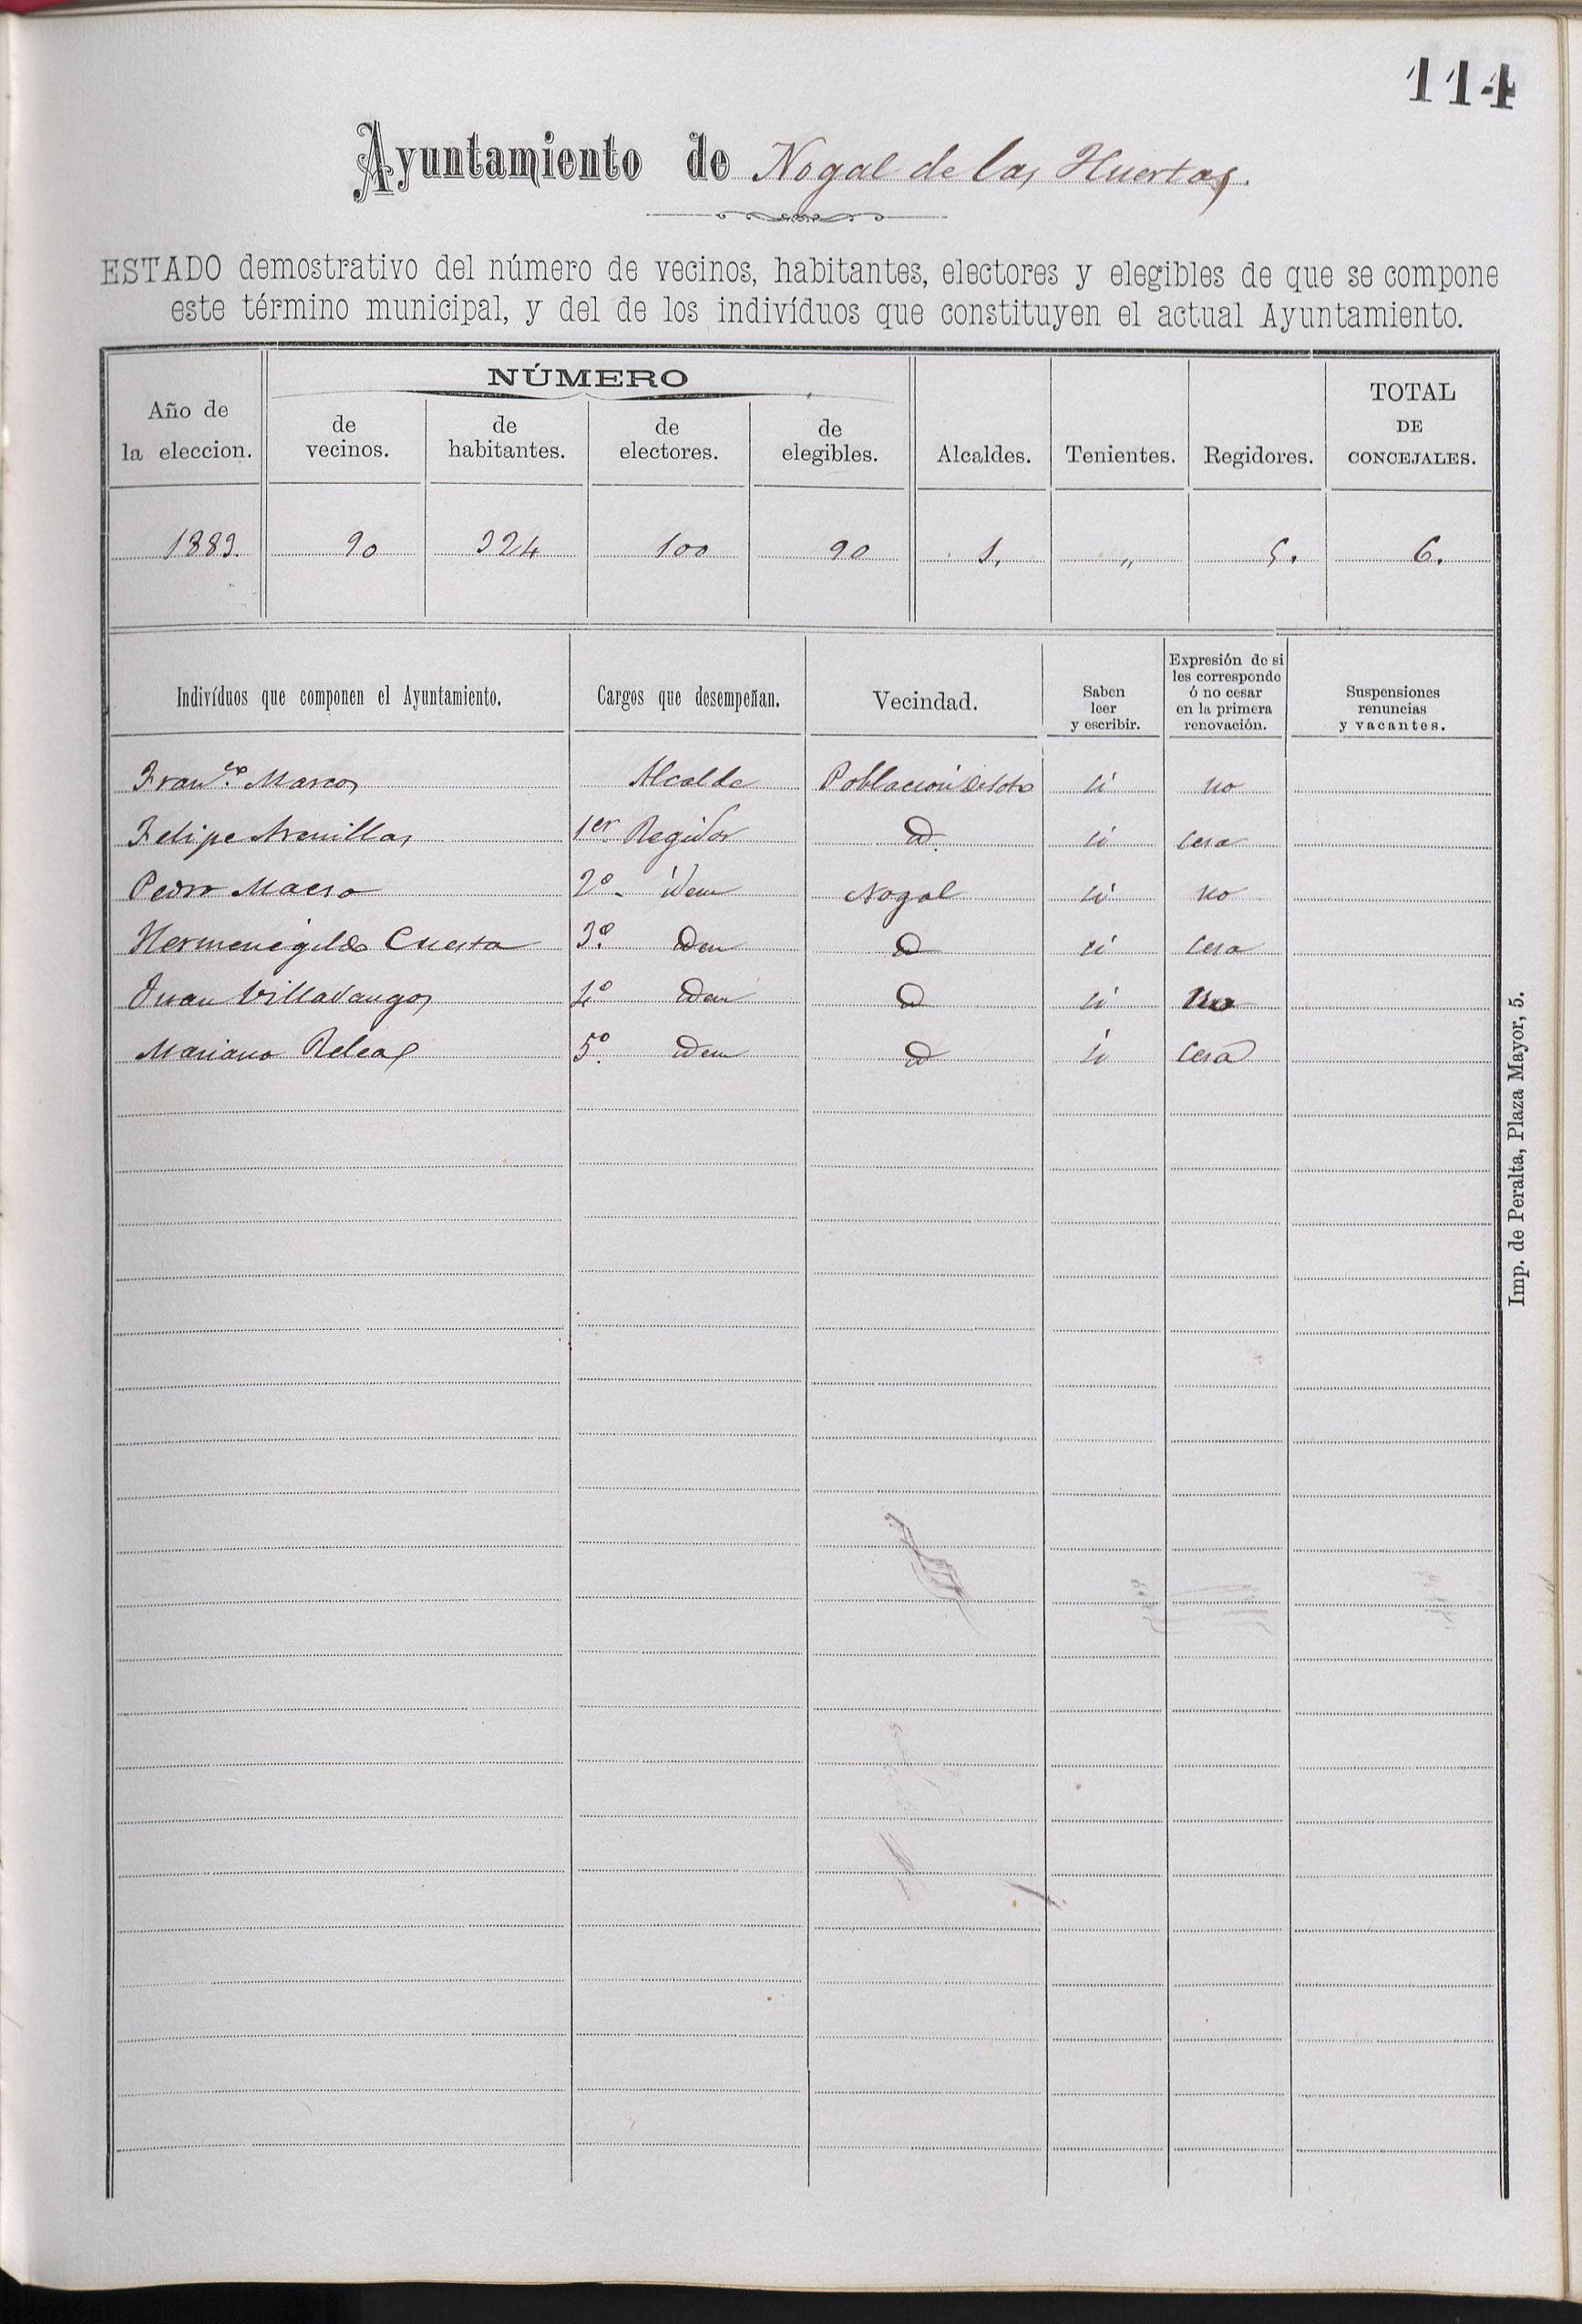 114
Ayuntamiento de Nogal de las Huertas.
ESTADO demostrativo del número de vecinos, habitantes, electores y elegibles de que se compone
este término municipal, y del de los indivíduos que constituyen el actual Ayuntamiento.
Año de la eleccion. NÚMERO de vecinos. de habitantes. de electores. de elegibles. Alcaldes. Tenientes. Regidores. TOTAL DE CONCEJALES.
1889. 90 324 100 90 1, " 5. 6.
Indivíduos que componen el Ayuntamiento. Cargos que desempeñan. Vecindad. Saben leer y escribir. Expresión de si les corresponde ó no cesar en la primera renovación. Suspensiones renuncias y vacantes.
Franco. Marcos Alcalde Población de Soto si no
Felipe Arenillas 1er Regidor id. si cesa
Pedro Maeso 2º idem Nogal si no
Hermenegildo Cuesta 3º idem id si cesa
Juan Villadangos 4º idem id si no
Mariano Relea 5º idem id si cesa
Imp. de Peralta, Plaza Mayor, 5.